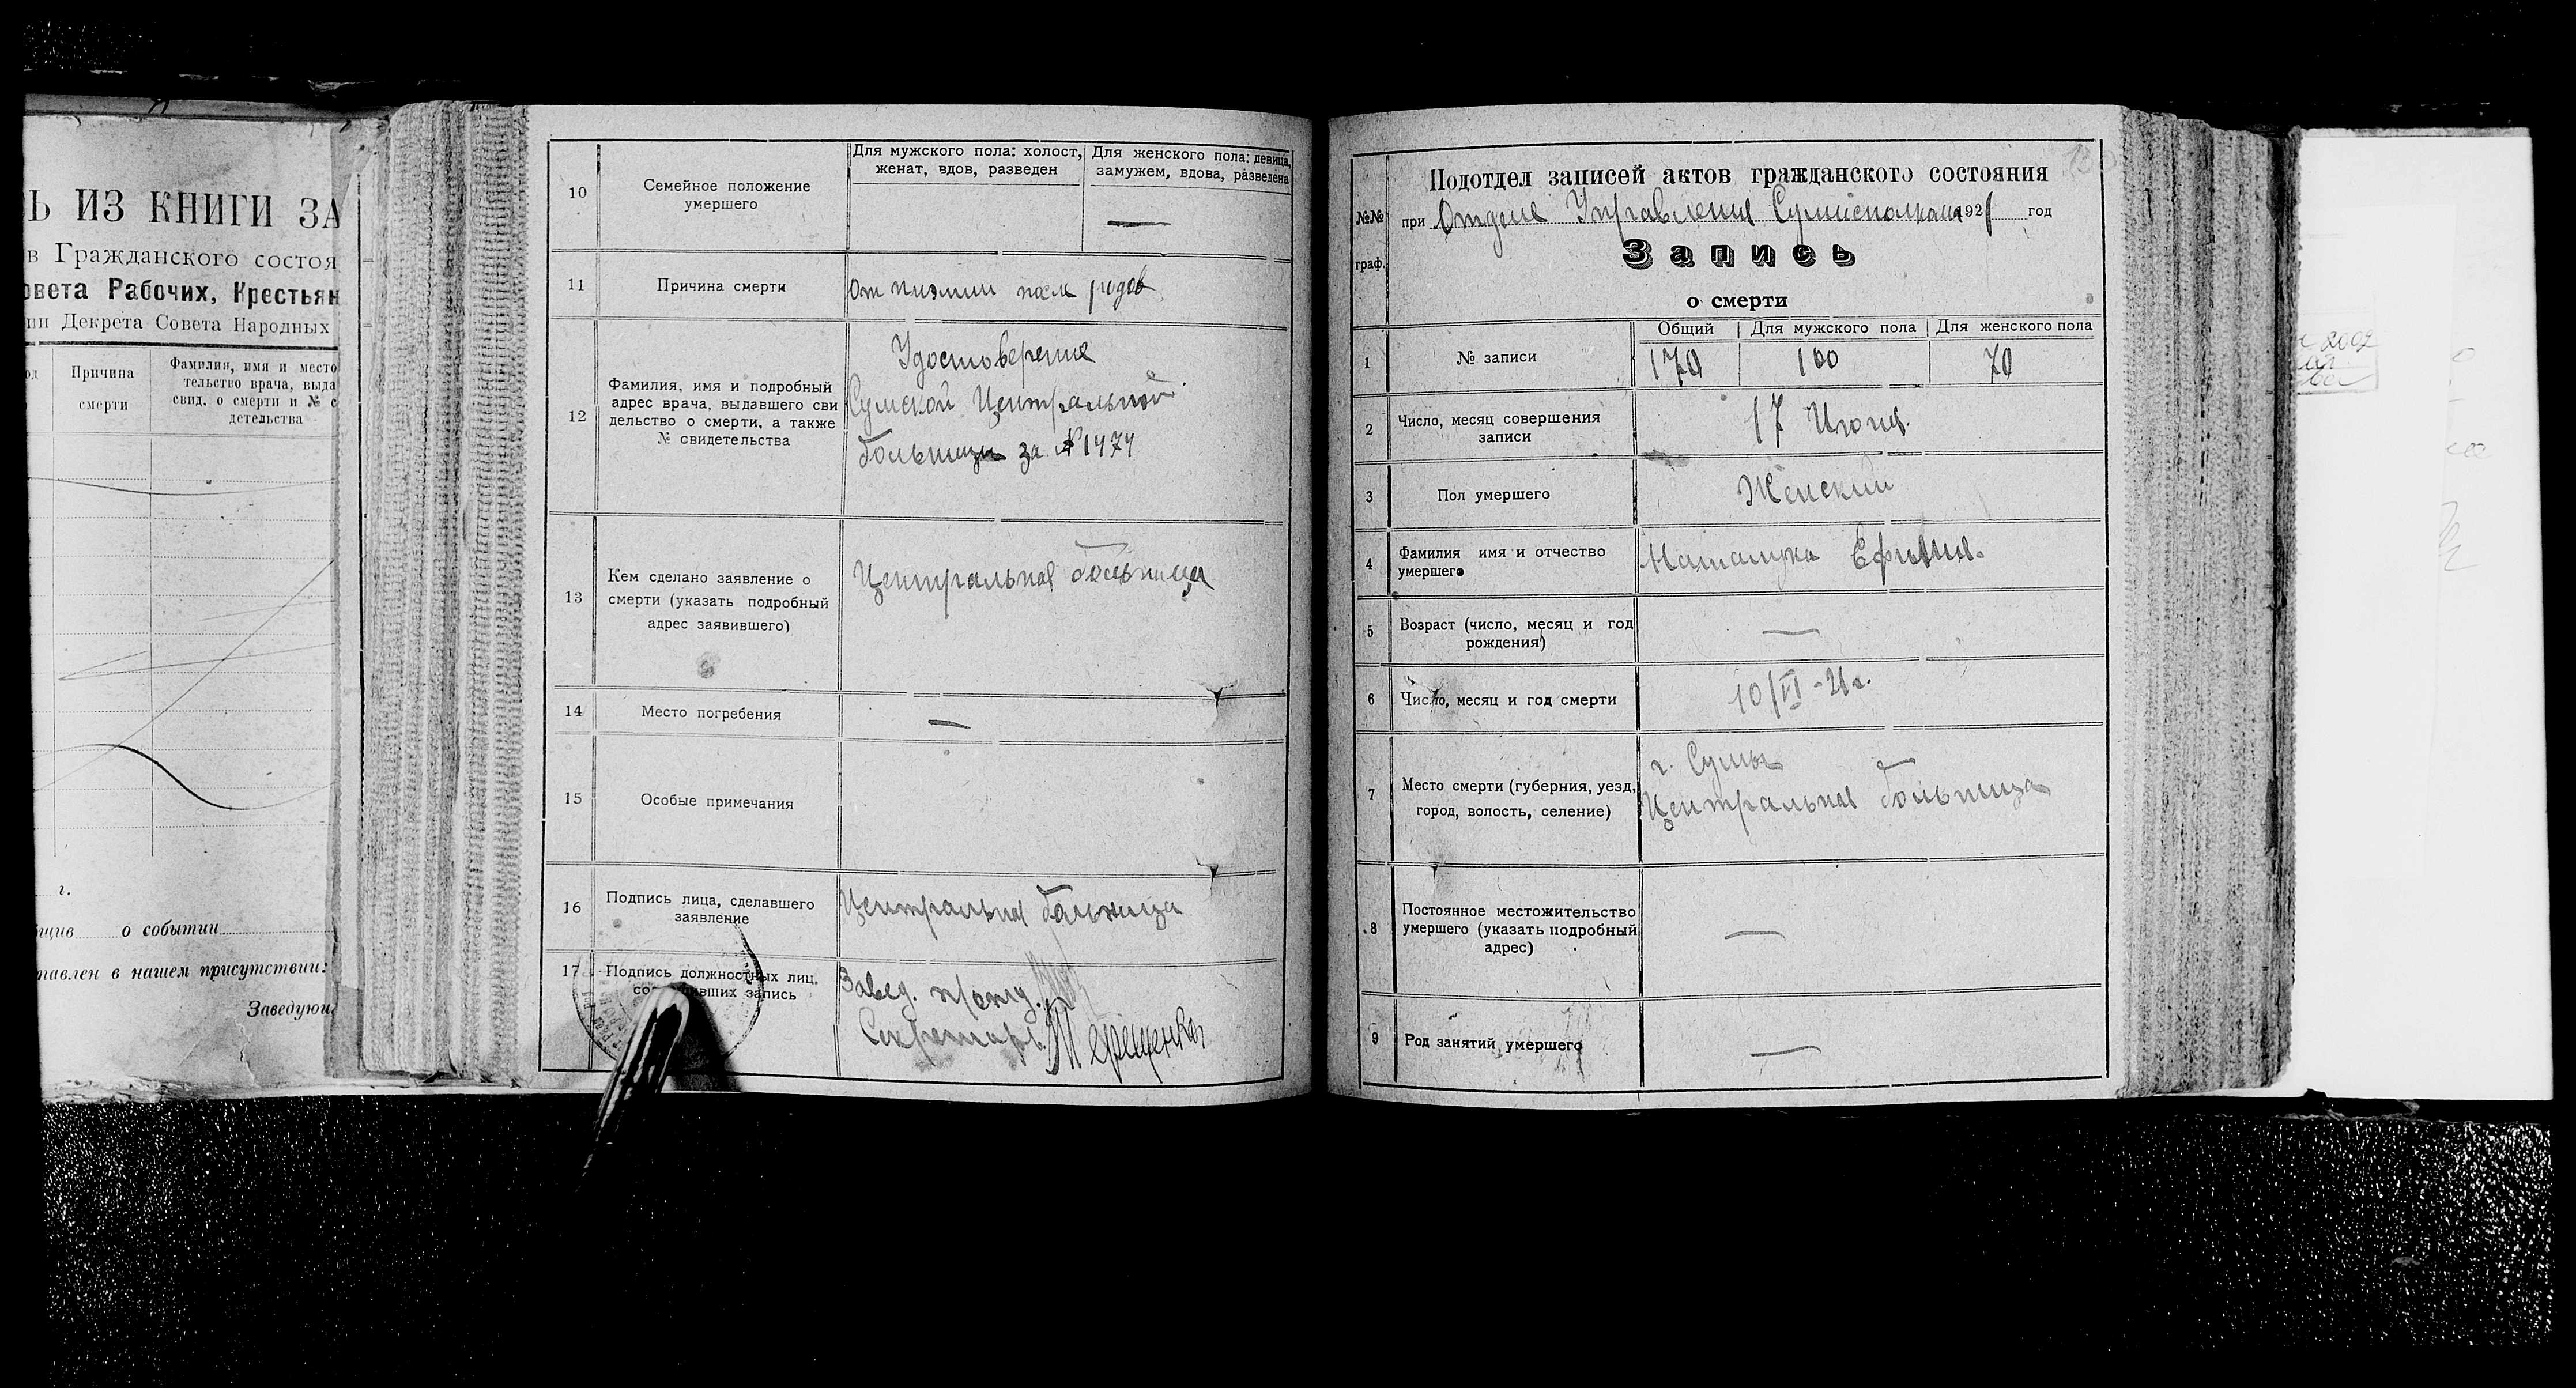 Ь ИЗ КНИГИ ЗА
в Гражданского состоя
овета Рабочих, Крестьян
ии Декрета Совета Народных
Причина
смерти
Фамилия, имя и место
тельство врача, выда
свид. о смерти и № с
детельства
г.
бщив о событии
тавлен в нашем присутствии:
Заведующ
10
Семейное положение
умершего
Для мужского пола: холост,
женат, вдов, разведен
Для женского пола: девица,
замужем, вдова, разведена
—
11
Причина смерти
От пиэмии после родов
12
Фамилия, имя и подробный
адрес врача, выдавшего сви
дельство о смерти, а также
№ свидетельства
Удостоверение
Сумской Центральной
больницы за №1474
13
Кем сделано заявление о
смерти (указать подробный
адрес заявившего)
Центральная больница
14
Место погребения
—
15
Особые примечания
16
Подпись лица, сделавшего
заявление
Центральная больница
17
Подпись должностных лиц,
со вивших запись
Завед. п/отд.
Секретарь Терещенко
13
№№
граф.
Подотдел записей актов гражданского состояния
при Отделе Управления Сумисполкома 1921 год
Запись
о смерти
1
№ записи
Общий
Для мужского пола
Для женского пола
170
100
70
2
Число, месяц совершения
записи
17 Июня.
3
Пол умершего
Женский
4
Фамилия имя и отчество
умершего
Наталуха
5
Возраст (число, месяц и год
рождения)
—
6
Число, месяц и год смерти
10/VI-21г.
7
Место смерти (губерния, уезд,
город, волость, селение)
г. Сумы
Центральная больница
8
Постоянное местожительство
умершего (указать подробный
адрес)
—
9
Род занятий умершего
—
2002